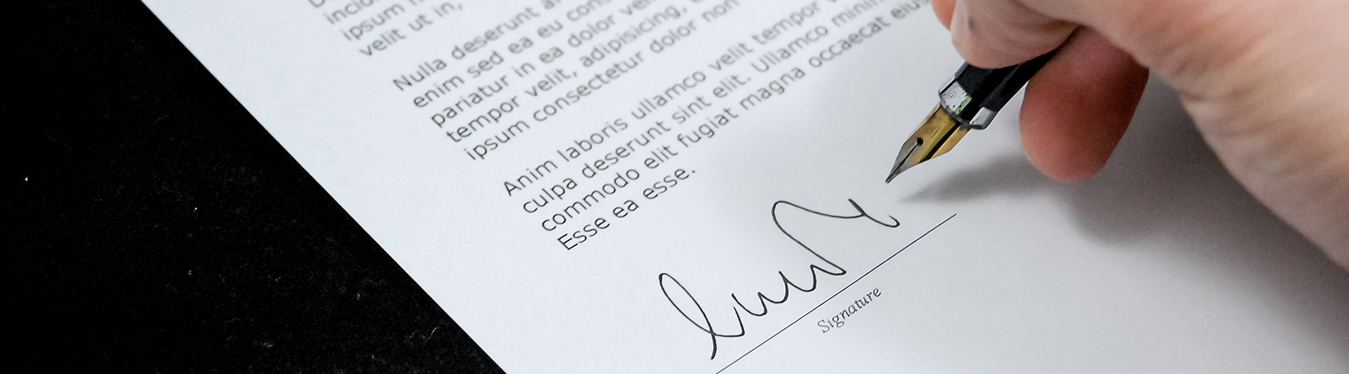 ipsum
velit ut in,
Nulla deserunt
enim sed ea eu
pariatur in ea dolor
tempor velit, adipisicing,
ipsum consectetur dolor non
Anim laboris ullamco velit tempor
culpa deserunt sint elit. Ullamco minim
commodo elit fugiat magna occaecat
Esse ea esse.
Signature